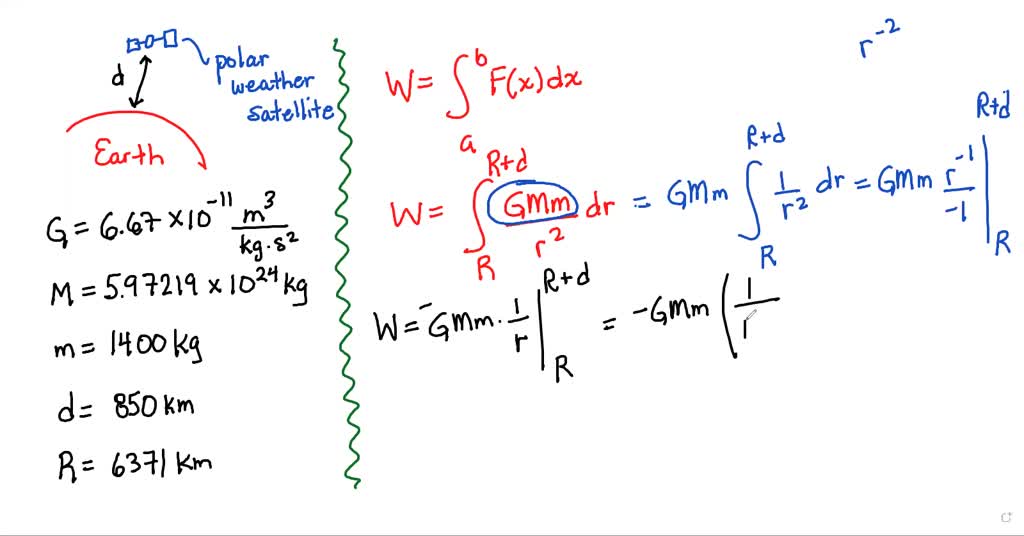 d
polar
weather
satellite
Earth
G = 6.67 × 10⁻¹¹ m³/kg·s²
M = 5.97219 × 10²⁴ kg
m = 1400 kg
d = 850 km
R = 6371 km
r⁻²
W = ∫ₐᵇ F(x) dx
W = ∫_R^{R+d} GMm/r² dr = GMm ∫_R^{R+d} 1/r² dr = GMm r⁻¹/-1 |_R^{R+d}
W = -GMm · 1/r |_R^{R+d} = -GMm (1/r